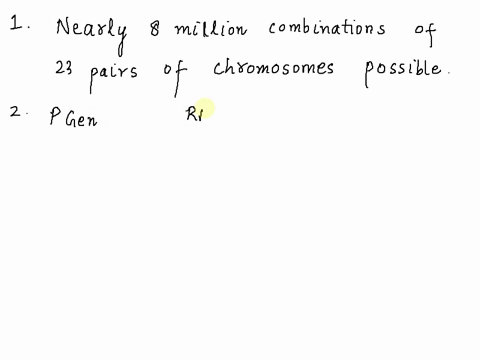 1. Nearly 8 million combinations of
23 pairs of chromosomes possible.
2. P Gen